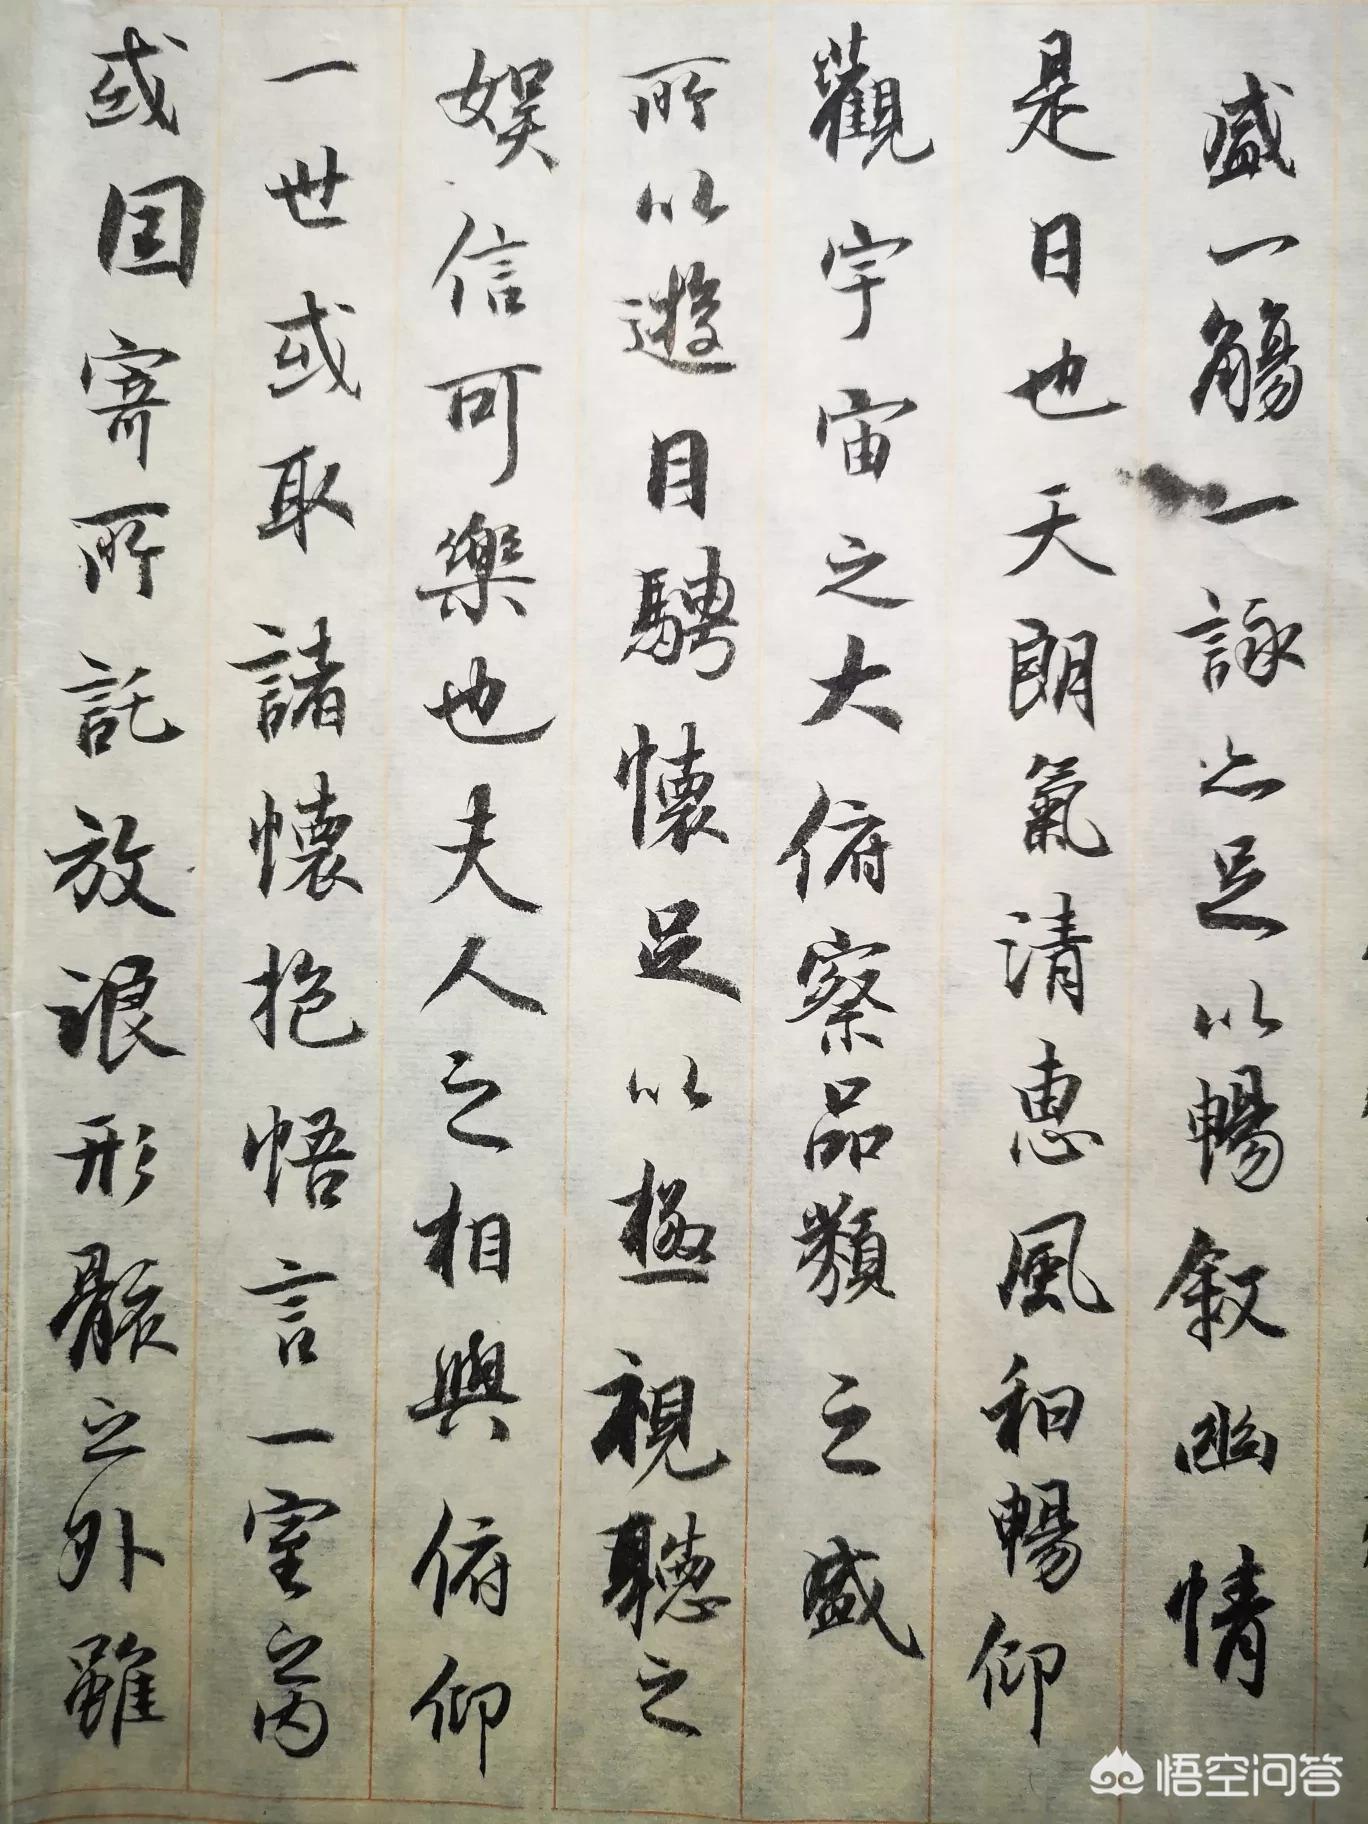 盛一觴一詠亦足以暢叙幽情
是日也天朗氣清惠風和暢仰
觀宇宙之大俯察品類之盛
所以遊目騁懷足以極視聽之
娛信可樂也夫人之相與俯仰
一世或取諸懷抱悟言一室之內
或因寄所託放浪形骸之外雖
悟空问答